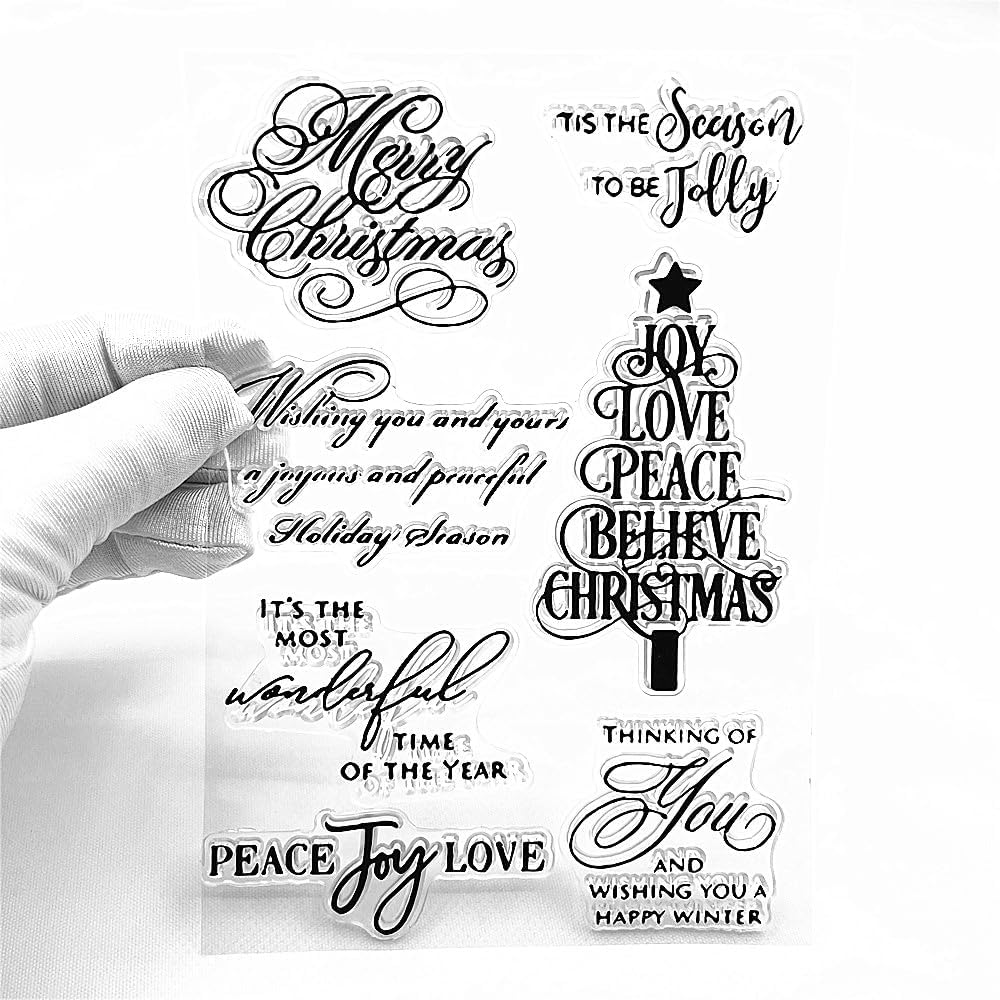 Merry
Christmas
'TIS THE Season
TO BE Jolly
Wishing you and yours
a joyous and peaceful
Holiday Season
JOY
LOVE
PEACE
BELIEVE
CHRISTMAS
IT'S THE
MOST
wonderful
TIME
OF THE YEAR
THINKING OF
You
AND
WISHING YOU A
HAPPY WINTER
PEACE Joy LOVE